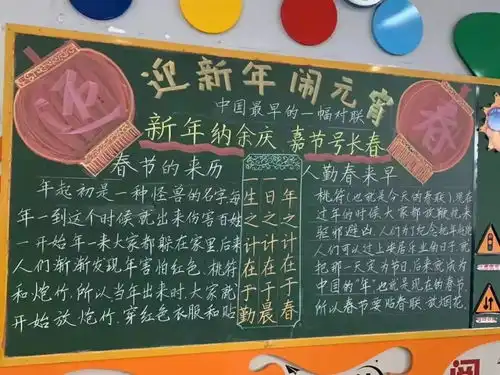 迎新年闹元宵
迎
春
中国最早的一幅对联
新年纳余庆 嘉节号长春
春节的来历
年起初是一种怪兽的名字每
年一到这个时候就出来伤害百姓
一开始年一来大家都躲在家里后来
人们渐渐发现年害怕红色、桃符
和炮竹.所以当年出来时.大家就
开始放.炮竹.穿红色衣服和贴
生之计在于勤
日之计在于晨
年之计在于春
人勤春来早
桃符(也就是今天的春联),现在
过年的时候大家都放鞭炮来
驱邪避凶
人们可以过上安居乐业的日子,就
把那一天定为节日,后来就成为
中国的“年”也就是现在的春节
所以春节要贴春联.放烟花.